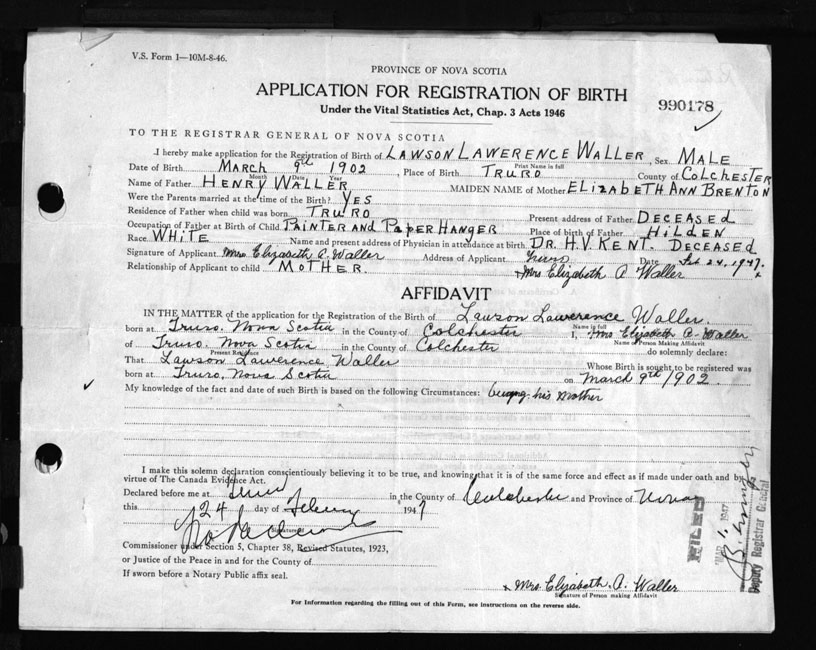 V.S. Form 1—10M-8-46.
PROVINCE OF NOVA SCOTIA
APPLICATION FOR REGISTRATION OF BIRTH
990178
Under the Vital Statistics Act, Chap. 3 Acts 1946
TO THE REGISTRAR GENERAL OF NOVA SCOTIA
I hereby make application for the Registration of Birth of LAWSON LAWERENCE WALLER, Sex MALE
Print Name in full
Date of Birth MARCH 9th 1902, Place of Birth TRURO County of COLCHESTER
Month Date Year
Name of Father HENRY WALLER MAIDEN NAME of Mother ELIZABETH ANN BRENTON
Were the Parents married at the time of Birth? YES
Residence of Father when child was born TRURO Present address of Father DECEASED
Occupation of Father at Birth of Child PAINTER AND PAPER HANGER Place of birth of Father HILDEN
Race WHITE Name and present address of Physician in attendance at birth DR. H.V. KENT. DECEASED
Signature of Applicant Mrs Elizabeth A. Waller Address of Applicant Truro Date Feb 24, 1947.
Relationship of Applicant to child MOTHER. Mrs. Elizabeth A Waller
AFFIDAVIT
IN THE MATTER of the application for the Registration of the Birth of Lawson Lawerence Waller
Name in full
born at Truro, Nova Scotia in the County of Colchester I, Mrs Elizabeth A. Waller
Name of Person Making Affidavit
of Truro. Nova Scotia in the County of Colchester do solemnly declare:
Present Residence
That Lawson Lawerence Waller Whose Birth is sought to be registered was
born at Truro, Nova Scotia on March 9th 1902.
My knowledge of the fact and date of such Birth is based on the following Circumstances: being his mother
I make this solemn declaration conscientiously believing it to be true, and knowing that it is of the same force and effect as if made under oath and by
virtue of The Canada Evidence Act.
Declared before me at Truro in the County of Colchester and Province of Nova
this 24 day of February 1947
Signature of
Commissioner under Section 5, Chapter 38, Revised Statutes, 1923,
or Justice of the Peace in and for the County of
If sworn before a Notary Public affix seal.
Mrs. Elizabeth A. Waller
Signature of Person making Affidavit
For Information regarding the filling out of this Form, see instructions on the reverse side.
FILED
1947
Deputy Registrar General